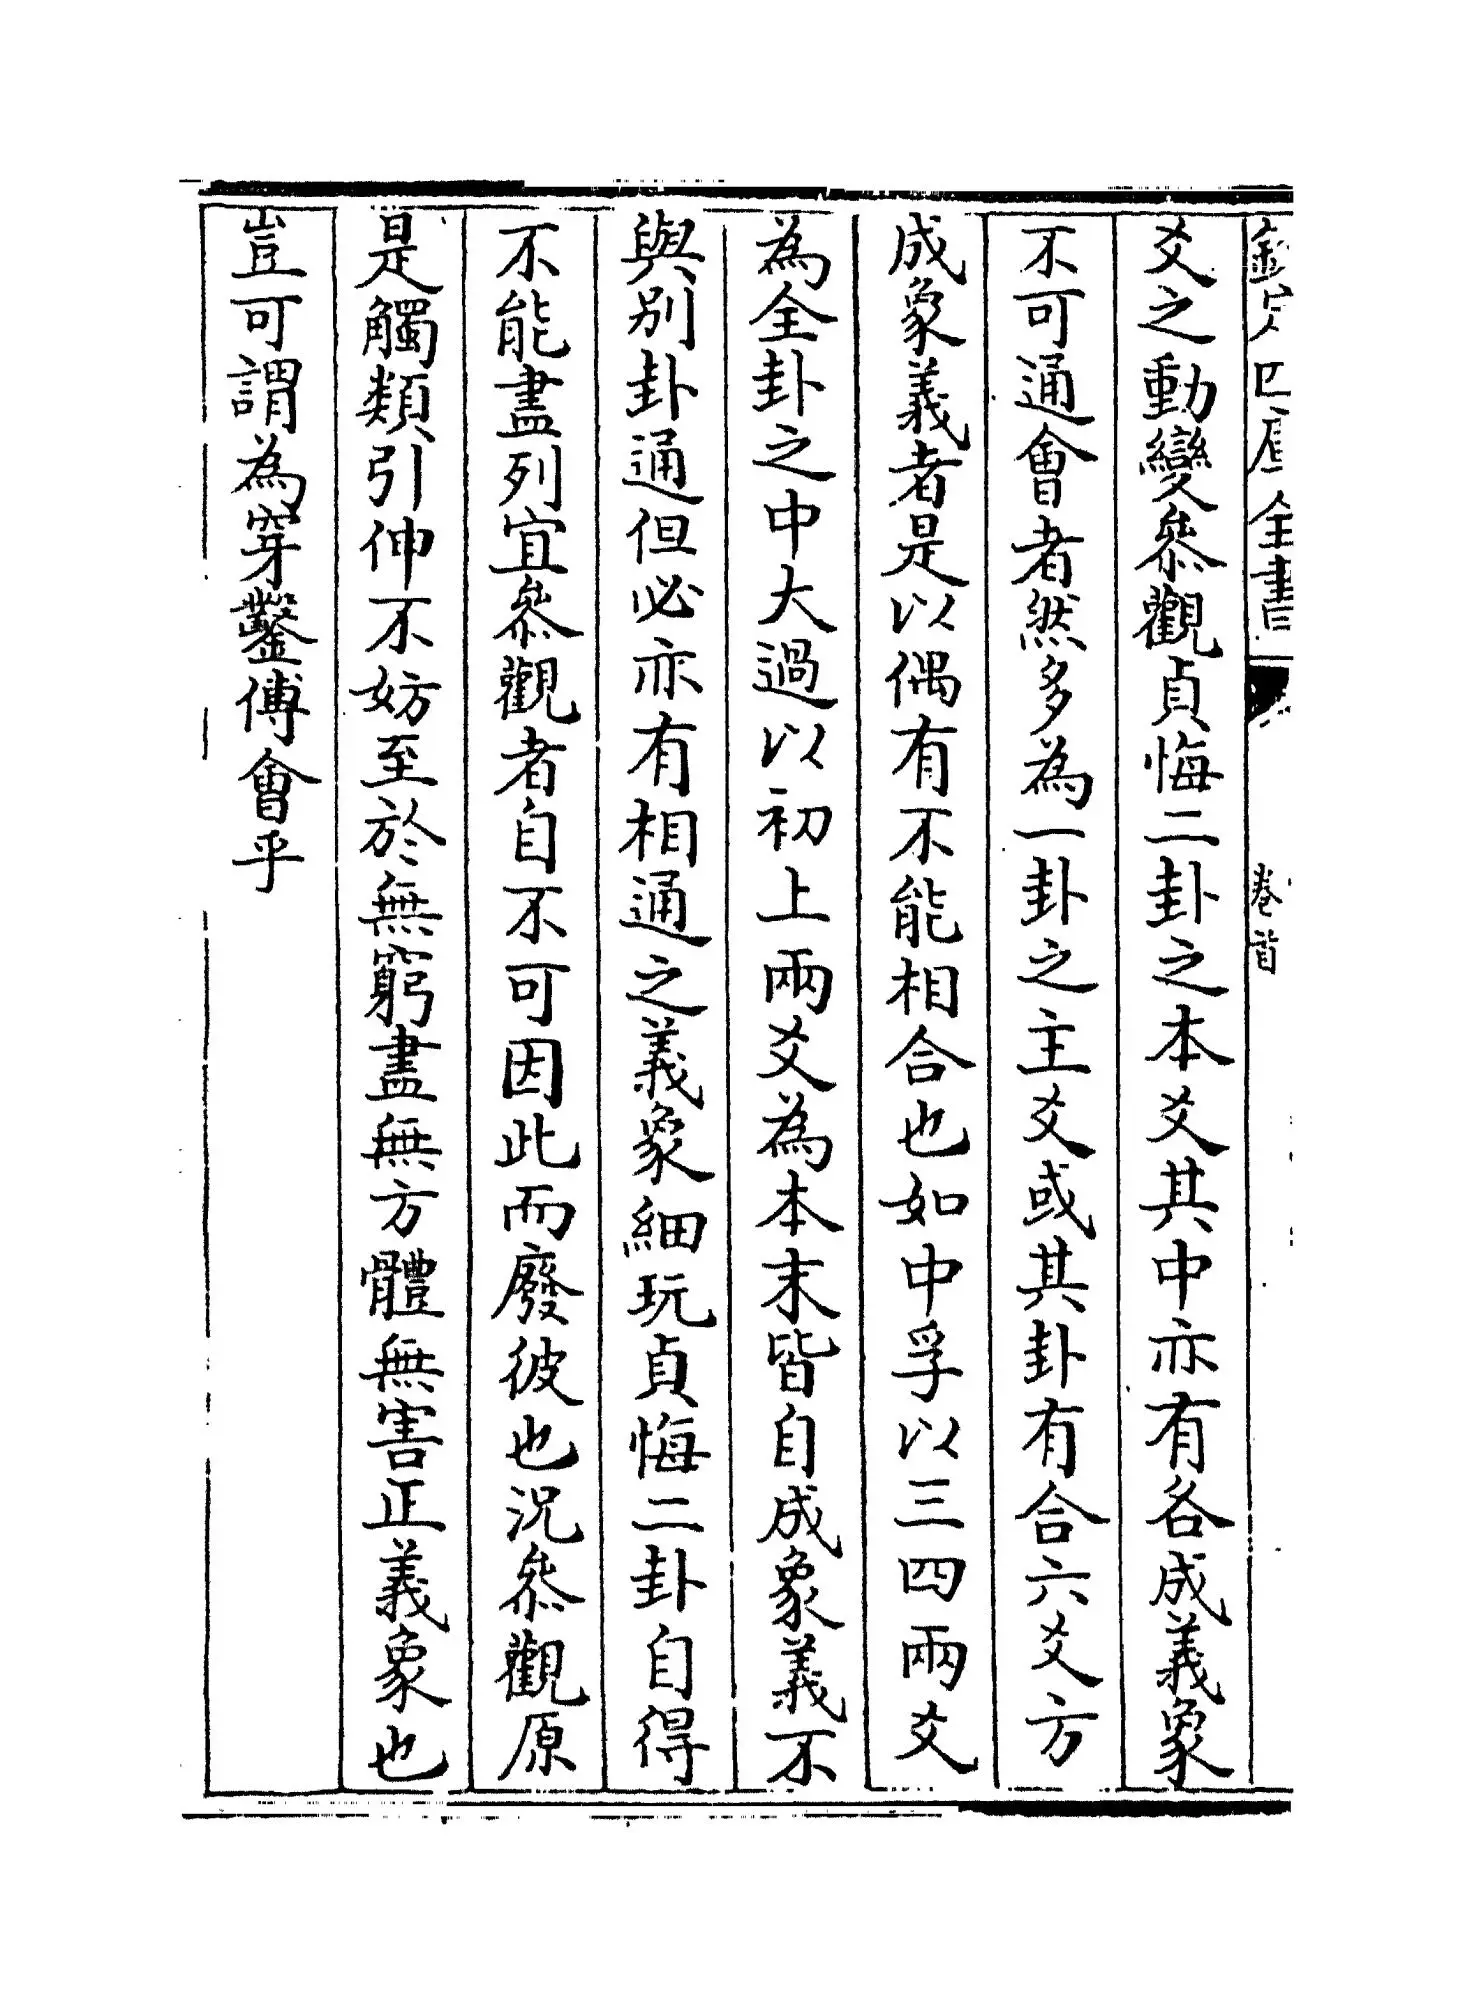 欽定四庫全書
卷首
爻之動變叅觀貞悔二卦之本爻其中亦有各成義象
不可通會者然多為一卦之主爻或其卦有合六爻方
成象義者是以偶有不能相合也如中孚以三四兩爻
為全卦之中大過以初上兩爻為本末皆自成象義不
與別卦通但必亦有相通之義象細玩貞悔二卦自得
不能盡列宜叅觀者自不可因此而廢彼也況叅觀原
是觸類引伸不妨至於無窮盡無方體無害正義象也
豈可謂為穿鑿傅會乎